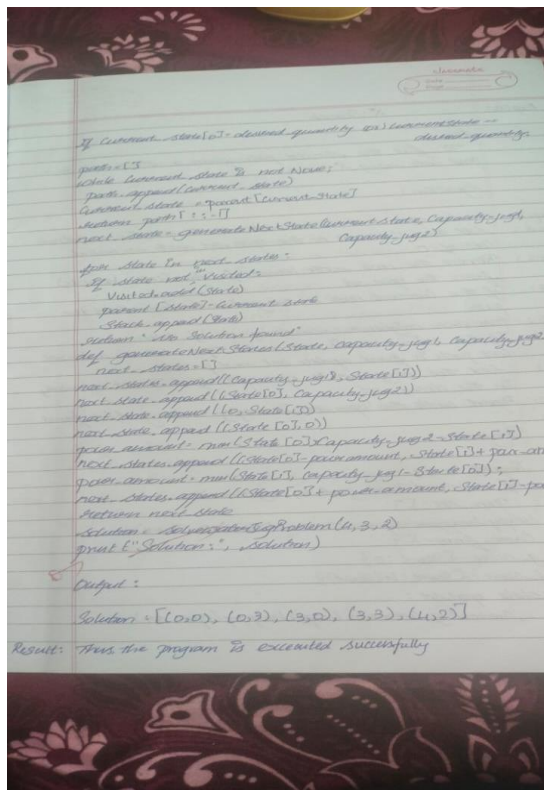 classmate
Date
Page
If current_state[0]= desired_quantity (or) current_state --
desired_quantity:
path=[]
while current_state is not None:
path.append(current_state)
current_state = parent[current_state]
return path[::-1]
next_state= generateNextState(current_state, Capacity-jug1,
Capacity-jug2)
for state In next_states:
If state not in Visited:
Visited.add(state)
parent[state]-current state
Stack.append(state)
return "No Solution found"
def generateNextStates(state, Capacity-jug1, Capacity-jug2
next_states=[]
next_states.append((Capacity-jug1, State[1]))
next_state.append((State[0], Capacity-jug2))
next_state.append((0, State[1]))
next_state.append((State[0], 0))
pour_amount= min(State[0], Capacity-jug2-State[1])
next_states.append((State[0]-pour amount, State[1]+
pour_amount= min(State[1], Capacity-jug1-State[0]);
next_states.append((State[0]+ pour-amount, State[1]-
return next_state
solution= JugProblem(4,3,2)
print ("Solution:", solution)
Output:
Solution = [(0,0), (0,3), (3,0), (3,3), (4,2)]
Result: Thus the program is executed successfully